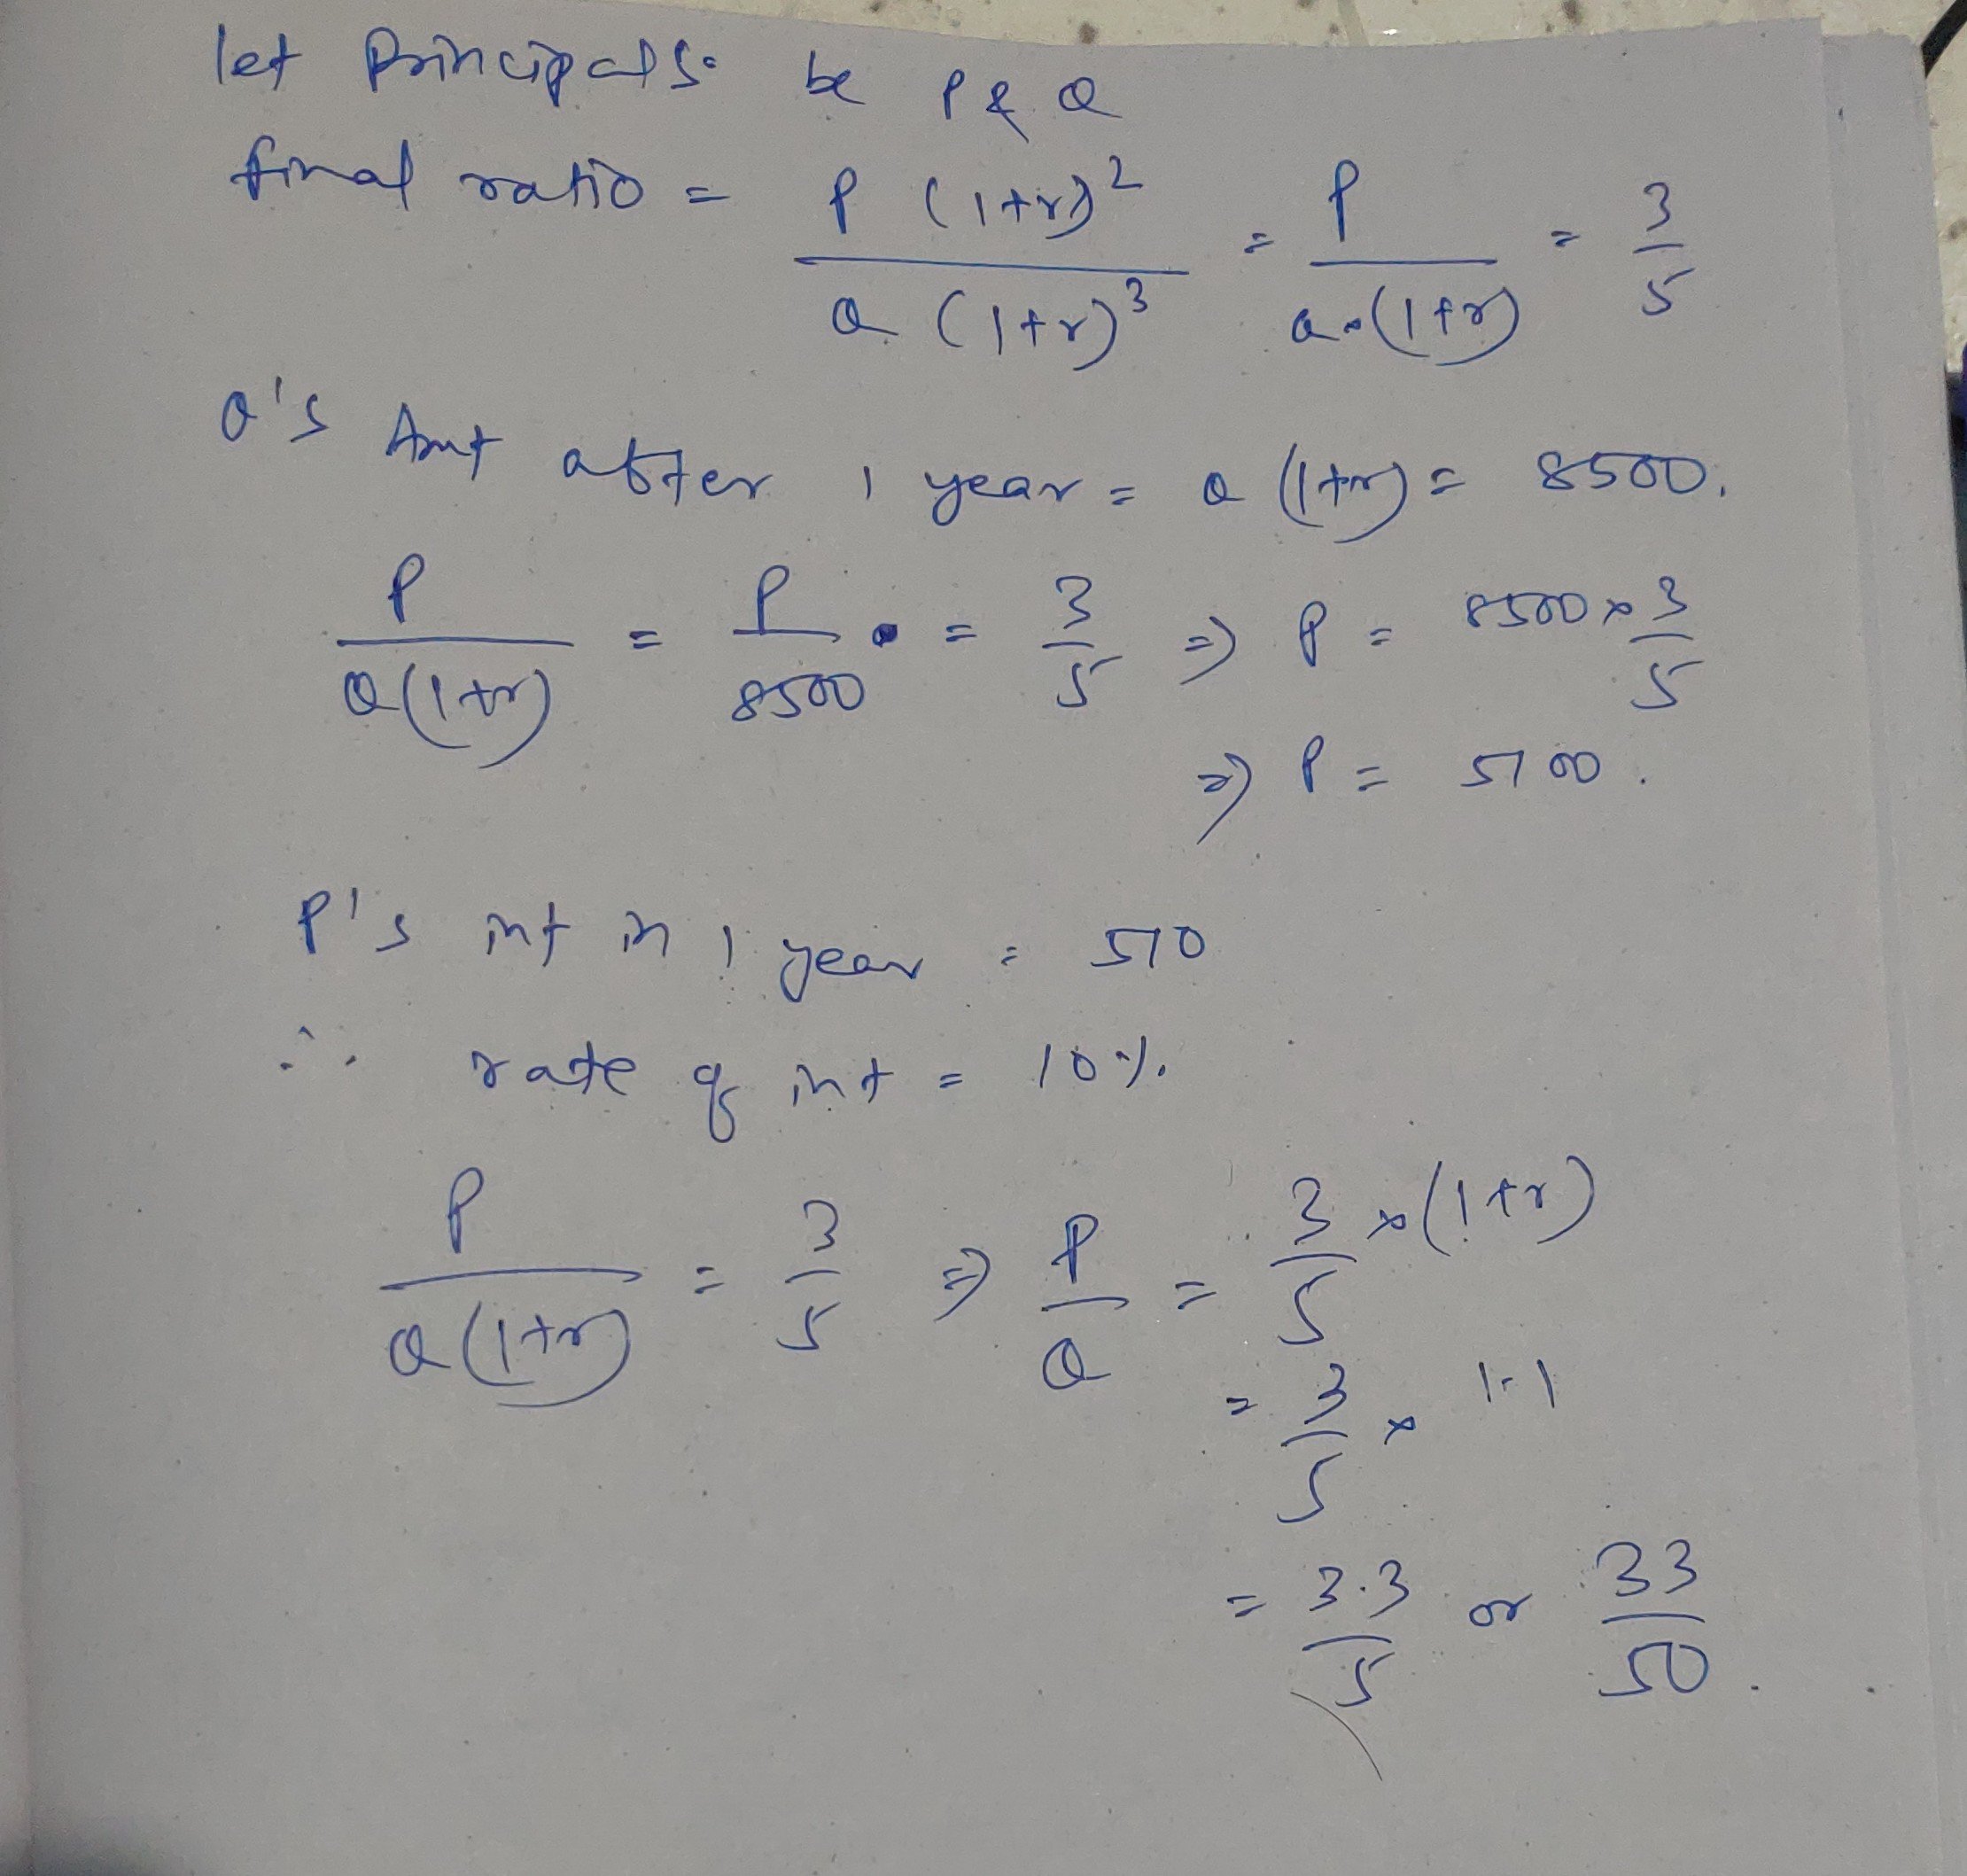 let Principals be P & Q
final ratio = P (1+r)² / Q (1+r)³ = P / Q(1+r) = 3/5
Q's Amt after 1 year = Q (1+r) = 8500.
P / Q(1+r) = P / 8500 = 3/5 ⇒ P = 8500 × 3/5
⇒ P = 5100.
P's int in 1 year = 510
∴ rate of int = 10%.
P / Q(1+r) = 3/5 ⇒ P/Q = 3/5 × (1+r)
= 3/5 × 1.1
= 3.3/5 or 33/50.